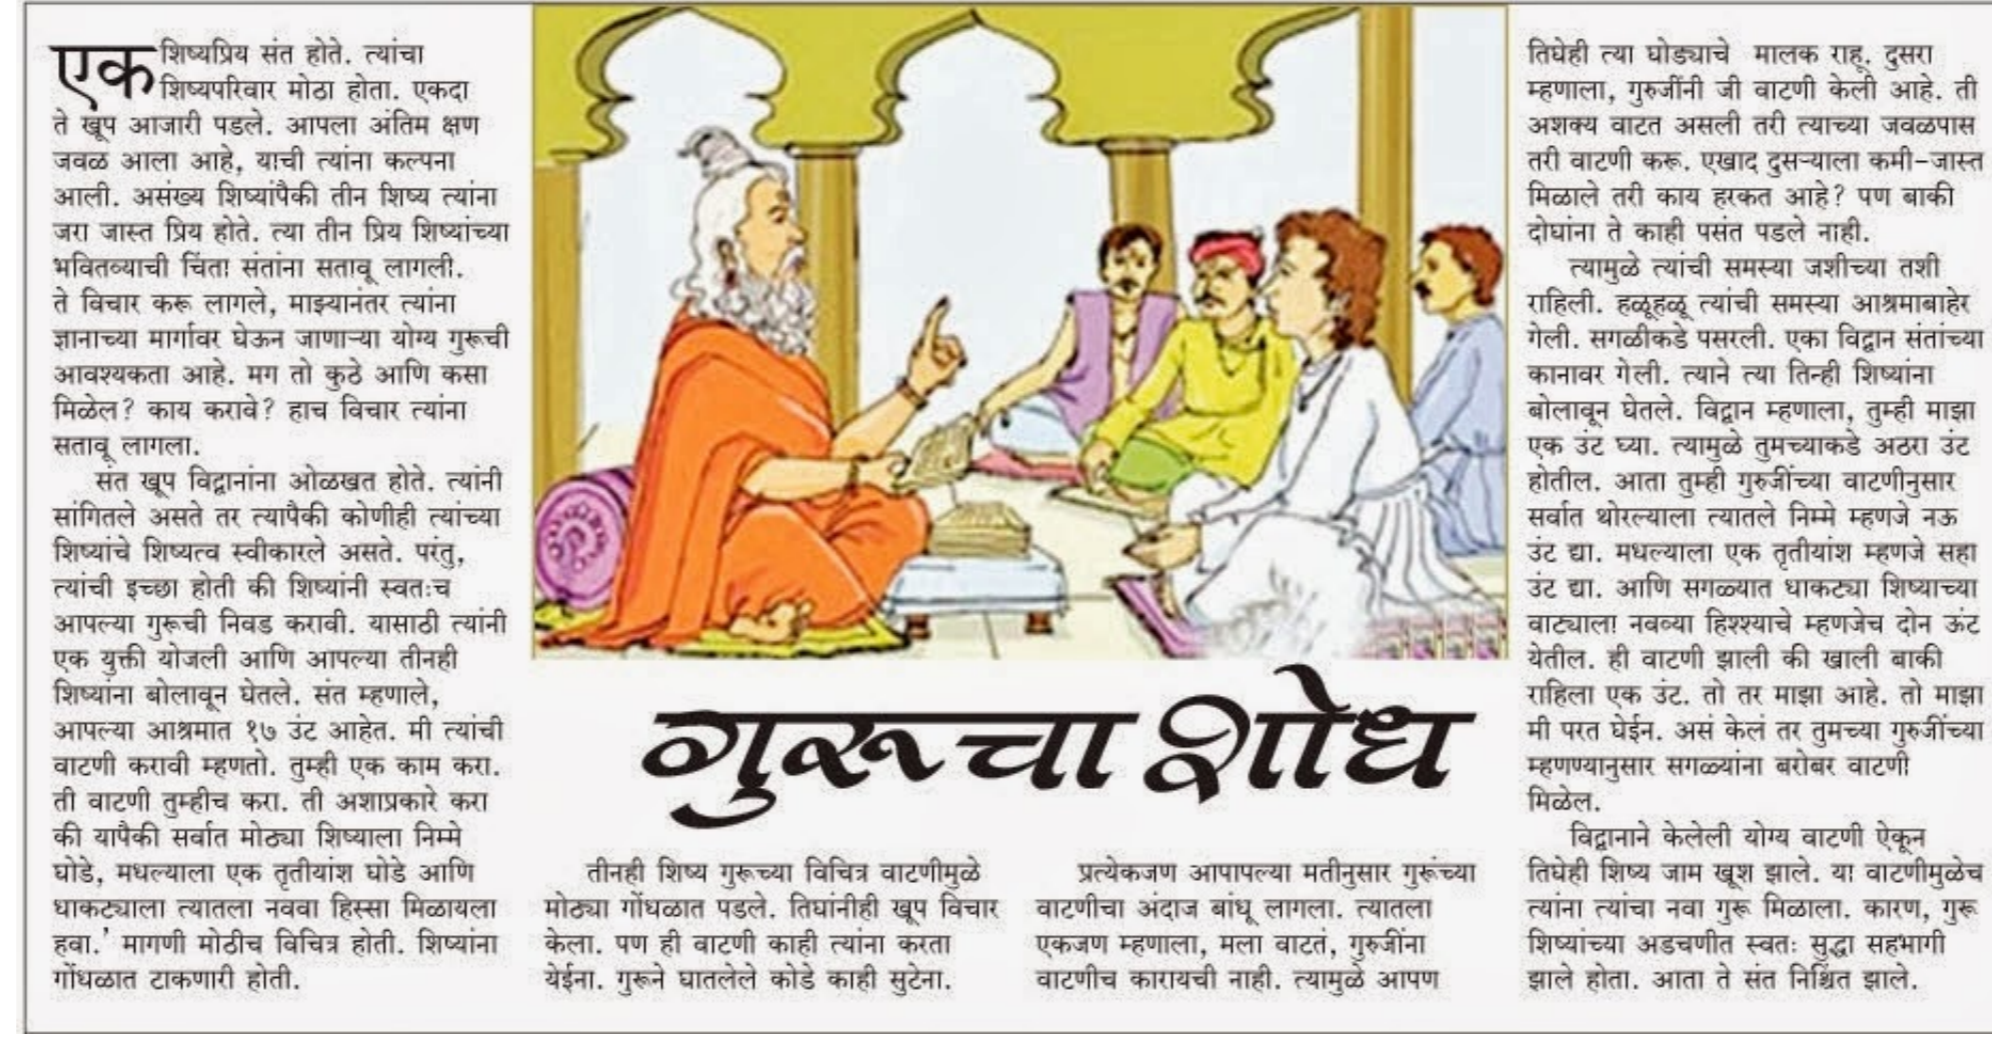 एक शिष्यप्रिय संत होते. त्यांचा
शिष्यपरिवार मोठा होता. एकदा
ते खूप आजारी पडले. आपला अंतिम क्षण
जवळ आला आहे, याची त्यांना कल्पना
आली. असंख्य शिष्यांपैकी तीन शिष्य त्यांना
जरा जास्त प्रिय होते. त्या तीन प्रिय शिष्यांच्या
भवितव्याची चिंता संतांना सतावू लागली.
ते विचार करू लागले, माझ्यानंतर त्यांना
ज्ञानाच्या मार्गावर घेऊन जाणाऱ्या योग्य गुरूची
आवश्यकता आहे. मग तो कुठे आणि कसा
मिळेल? काय करावे? हाच विचार त्यांना
सतावू लागला.
संत खूप विद्वानांना ओळखत होते. त्यांनी
सांगितले असते तर त्यापैकी कोणीही त्यांच्या
शिष्यांचे शिष्यत्व स्वीकारले असते. परंतु,
त्यांची इच्छा होती की शिष्यांनी स्वतःच
आपल्या गुरूची निवड करावी. यासाठी त्यांनी
एक युक्ती योजली आणि आपल्या तीनही
शिष्यांना बोलावून घेतले. संत म्हणाले,
आपल्या आश्रमात १७ उंट आहेत. मी त्यांची
वाटणी करावी म्हणतो. तुम्ही एक काम करा.
ती वाटणी तुम्हीच करा. ती अशाप्रकारे करा
की यापैकी सर्वात मोठ्या शिष्याला निम्मे
घोडे, मधल्याला एक तृतीयांश घोडे आणि
धाकट्याला त्यातला नववा हिस्सा मिळायला
हवा.' मागणी मोठीच विचित्र होती. शिष्यांना
गोंधळात टाकणारी होती.
गुरूचा शोध
तीनही शिष्य गुरूच्या विचित्र वाटणीमुळे
मोठ्या गोंधळात पडले. तिघांनीही खूप विचार
केला. पण ही वाटणी काही त्यांना करता
येईना. गुरूने घातलेले कोडे काही सुटेना.
प्रत्येकजण आपापल्या मतीनुसार गुरूंच्या
वाटणीचा अंदाज बांधू लागला. त्यातला
एकजण म्हणाला, मला वाटतं, गुरुजींना
वाटणीच कारायची नाही. त्यामुळे आपण
तिघेही त्या घोड्याचे मालक राहू. दुसरा
म्हणाला, गुरुजींनी जी वाटणी केली आहे. ती
अशक्य वाटत असली तरी त्याच्या जवळपास
तरी वाटणी करू. एखाद दुसऱ्याला कमी-जास्त
मिळाले तरी काय हरकत आहे? पण बाकी
दोघांना ते काही पसंत पडले नाही.
त्यामुळे त्यांची समस्या जशीच्या तशी
राहिली. हळूहळू त्यांची समस्या आश्रमाबाहेर
गेली. सगळीकडे पसरली. एका विद्वान संतांच्या
कानावर गेली. त्याने त्या तिन्ही शिष्यांना
बोलावून घेतले. विद्वान म्हणाला, तुम्ही माझा
एक उंट घ्या. त्यामुळे तुमच्याकडे अठरा उंट
होतील. आता तुम्ही गुरुजींच्या वाटणीनुसार
सर्वात थोरल्याला त्यातले निम्मे म्हणजे नऊ
उंट द्या. मधल्याला एक तृतीयांश म्हणजे सहा
उंट द्या. आणि सगळ्यात धाकट्या शिष्याच्या
वाट्याला नवव्या हिश्श्याचे म्हणजेच दोन ऊंट
येतील. ही वाटणी झाली की खाली बाकी
राहिला एक उंट. तो तर माझा आहे. तो माझा
मी परत घेईन. असं केलं तर तुमच्या गुरुजींच्या
म्हणण्यानुसार सगळ्यांना बरोबर वाटणी
मिळेल.
विद्वानाने केलेली योग्य वाटणी ऐकून
तिघेही शिष्य जाम खूश झाले. या वाटणीमुळेच
त्यांना त्यांचा नवा गुरू मिळाला. कारण, गुरू
शिष्यांच्या अडचणीत स्वतः सुद्धा सहभागी
झाले होता. आता ते संत निश्चिंत झाले.